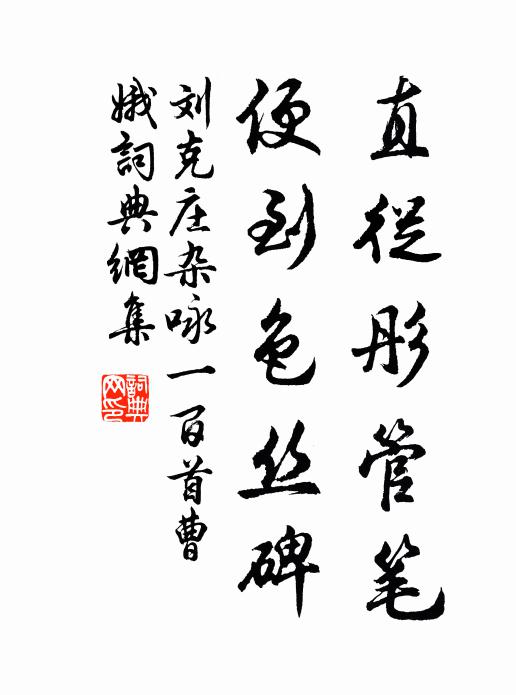 直從彤管笔
便到色丝碑
刘克庄杂咏一百首曹
娥詞典網集
詞典
网印